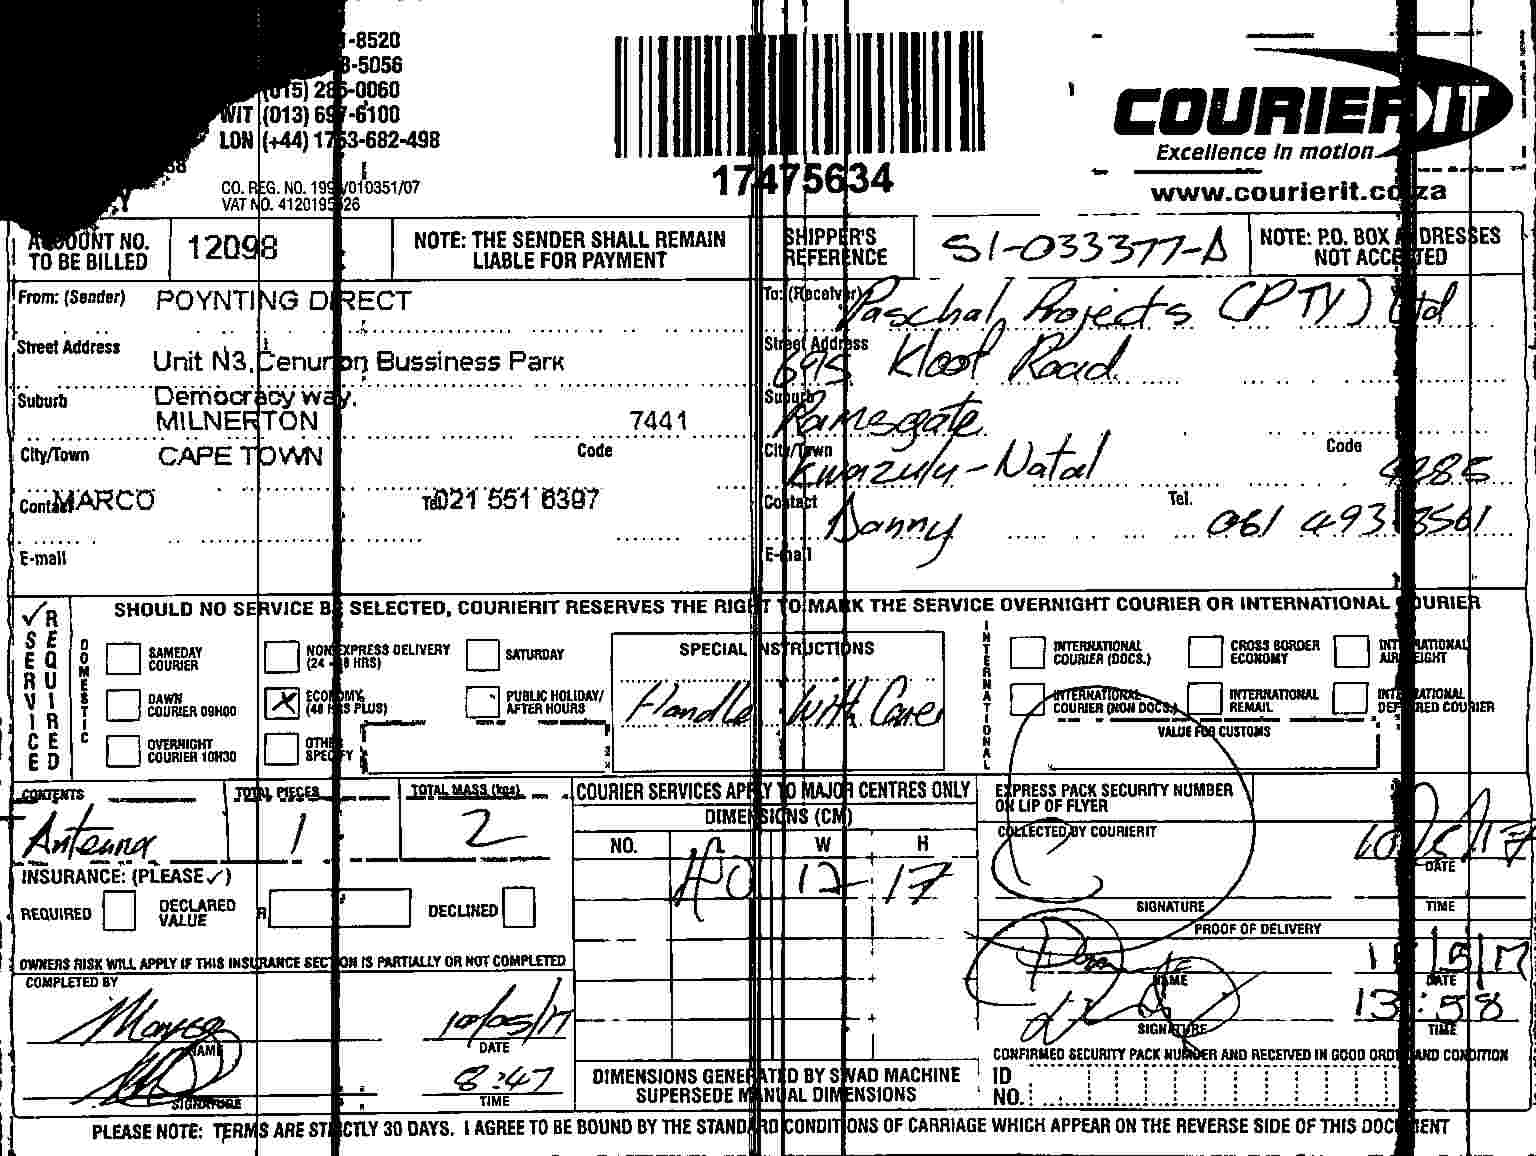 -8520
-5056
(015) 286-0060
WIT (013) 697-6100
LON (+44) 1753-682-498
CO. REG. NO. /010351/07
VAT NO.
17475634
COURIERIT
Excellence in motion
www.courierit.co.za
ACCOUNT NO. TO BE BILLED
12098
NOTE: THE SENDER SHALL REMAIN LIABLE FOR PAYMENT
SHIPPER'S REFERENCE
SI-033377-A
NOTE: P.O. BOX ADDRESSES NOT ACCEPTED
From: (Sender) POYNTING DIRECT
Street Address Unit N3, Cenurion Bussiness Park
Suburb Democracy way.
MILNERTON 7441
City/Town CAPE TOWN Code
Contact MARCO Tel 021 551 6397
E-mail
To: (Receiver) Paschal Projects (PTY) Ltd
Street Address 695 Kloof Road
Suburb Ramsgate
City/Town Kwazulu-Natal Code 4285
Contact Danny Tel. 061 493 3561
E-mail
✓ SERVICE REQUIRED
SHOULD NO SERVICE BE SELECTED, COURIERIT RESERVES THE RIGHT TO MARK THE SERVICE OVERNIGHT COURIER OR INTERNATIONAL COURIER
DOMESTIC
SAMEDAY COURIER
NON EXPRESS DELIVERY (24 - 48 HRS)
SATURDAY
DAWN COURIER 09H00
X ECONOMY (48 HRS PLUS)
PUBLIC HOLIDAY/ AFTER HOURS
OVERNIGHT COURIER 10H30
OTHER SPECIFY
SPECIAL INSTRUCTIONS
Handle With Care
INTERNATIONAL
INTERNATIONAL COURIER (DOCS.)
CROSS BORDER ECONOMY
INTERNATIONAL AIRFREIGHT
INTERNATIONAL COURIER (NON DOCS.)
INTERNATIONAL REMAIL
INTERNATIONAL DEFERRED COURIER
VALUE FOR CUSTOMS
CONTENTS
Antenna
TOTAL PIECES
1
TOTAL MASS (kgs)
2
INSURANCE: (PLEASE ✓)
REQUIRED DECLARED VALUE R DECLINED
OWNERS RISK WILL APPLY IF THIS INSURANCE SECTION IS PARTIALLY OR NOT COMPLETED
COMPLETED BY
Marco 10/05/17
NAME DATE
8:47
SIGNATURE TIME
COURIER SERVICES APPLY TO MAJOR CENTRES ONLY
DIMENSIONS (CM)
NO. L W H
40 12 17
DIMENSIONS GENERATED BY SWAD MACHINE SUPERSEDE MANUAL DIMENSIONS
EXPRESS PACK SECURITY NUMBER ON LIP OF FLYER
COLLECTED BY COURIERIT
10/5/17
DATE
SIGNATURE TIME
PROOF OF DELIVERY
/5/17
NAME DATE
13:58
SIGNATURE TIME
CONFIRMED SECURITY PACK NUMBER AND RECEIVED IN GOOD ORDER AND CONDITION
ID NO.
PLEASE NOTE: TERMS ARE STRICTLY 30 DAYS. I AGREE TO BE BOUND BY THE STANDARD CONDITIONS OF CARRIAGE WHICH APPEAR ON THE REVERSE SIDE OF THIS DOCUMENT